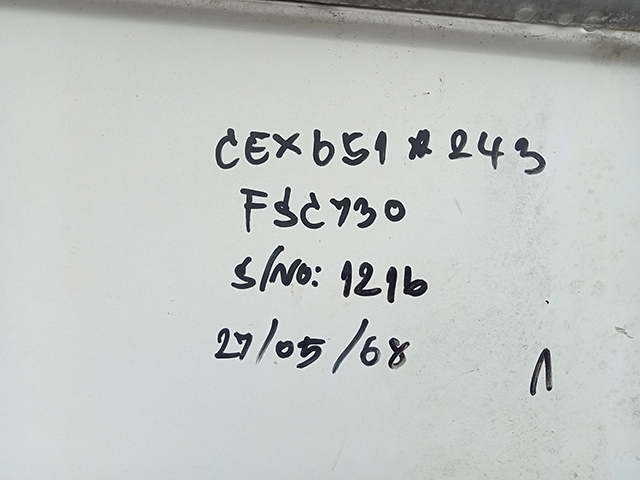 CEX651*243
FSC730
S/NO: 1216
27/05/68
1